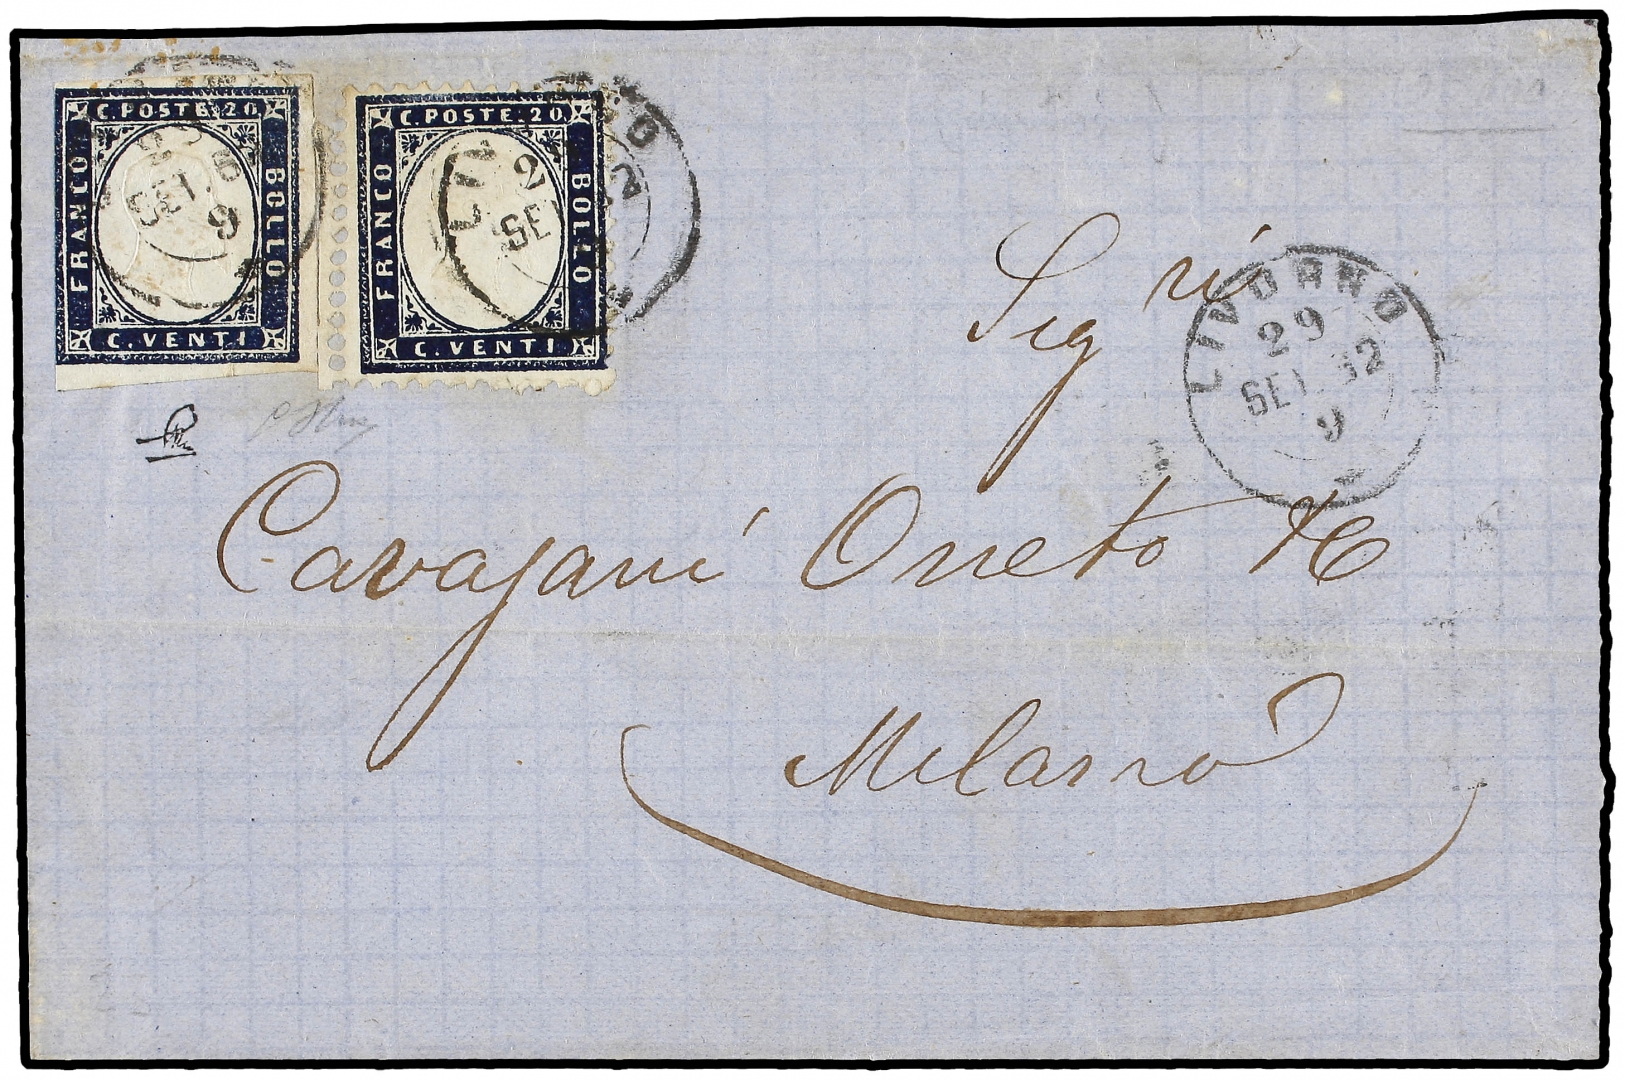 C. POSTE. 20.
FRANCO
BOLLO
C. VENTI
SET
9
C. POSTE. 20.
FRANCO
BOLLO
C. VENTI
2
SET
LIVORNO
29
SET. 62
9
Sig ri
Cavajani Oneto
Milano